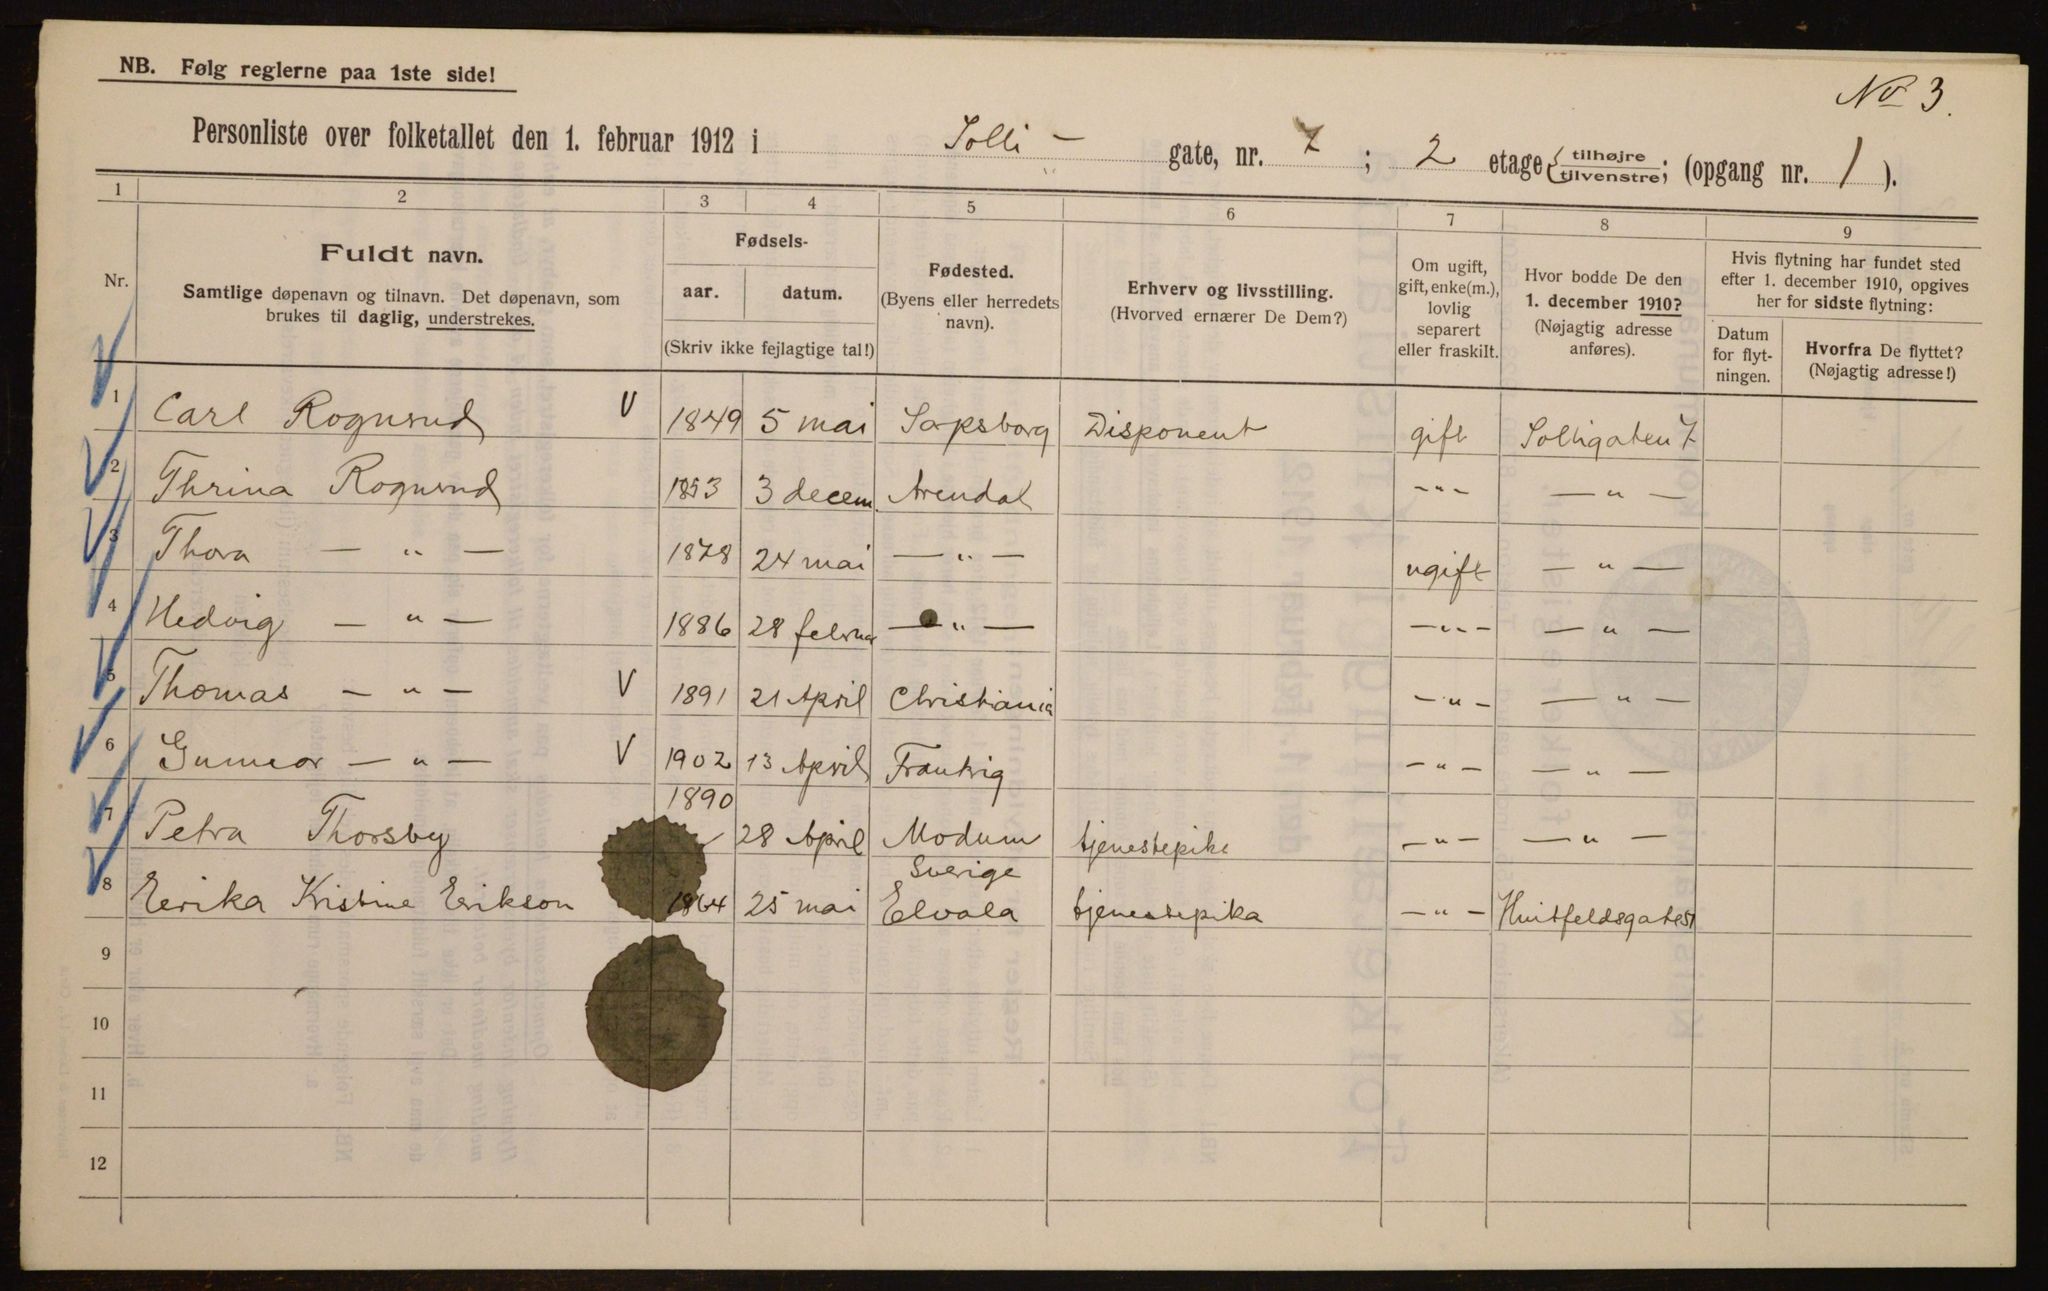 NB. Følg reglerne paa 1ste side!
No 3.
Personliste over folketallet den 1. februar 1912 i Solli - gate, nr. 7 ; 2 etage { tilhøjre / tilvenstre ; (opgang nr. 1 ).
1 2 3 4 5 6 7 8 9
Nr.
Fuldt navn.
Samtlige døpenavn og tilnavn. Det døpenavn, som
brukes til daglig, understrekes.
Fødsels-
aar. datum.
(Skriv ikke fejlagtige tal!)
Fødested.
(Byens eller herredets
navn).
Erhverv og livsstilling.
(Hvorved ernærer De Dem?)
Om ugift,
gift, enke(m.),
lovlig
separert
eller fraskilt.
Hvor bodde De den
1. december 1910?
(Nøjagtig adresse
anføres).
Hvis flytning har fundet sted
efter 1. december 1910, opgives
her for sidste flytning:
Datum
for flyt-
ningen.
Hvorfra De flyttet?
(Nøjagtig adresse!)
1 Carl Rognsrud V 1849 5 mai Sarpsborg Disponent gift Solligaten 7
2 Thrina Rognsrud 1853 3 decem. Arendal - " - — " —
3 Thora — " — 1878 24 mai — " — ugift — " —
4 Hedvig — " — 1886 28 februar — " — - " - — " —
5 Thomas — " — V 1891 21 April Christiania - " - — " —
6 Gunnar — " — V 1902 13 April Frankrig - " - — " —
7 Petra Thorsby 1890 28 April Modum tjenestepike - " - — " —
8 Eerika Kristine Erikson 1864 25 mai Sverige Elvala tjenestepika - " - Huitfeldsgaten
9
10
11
12